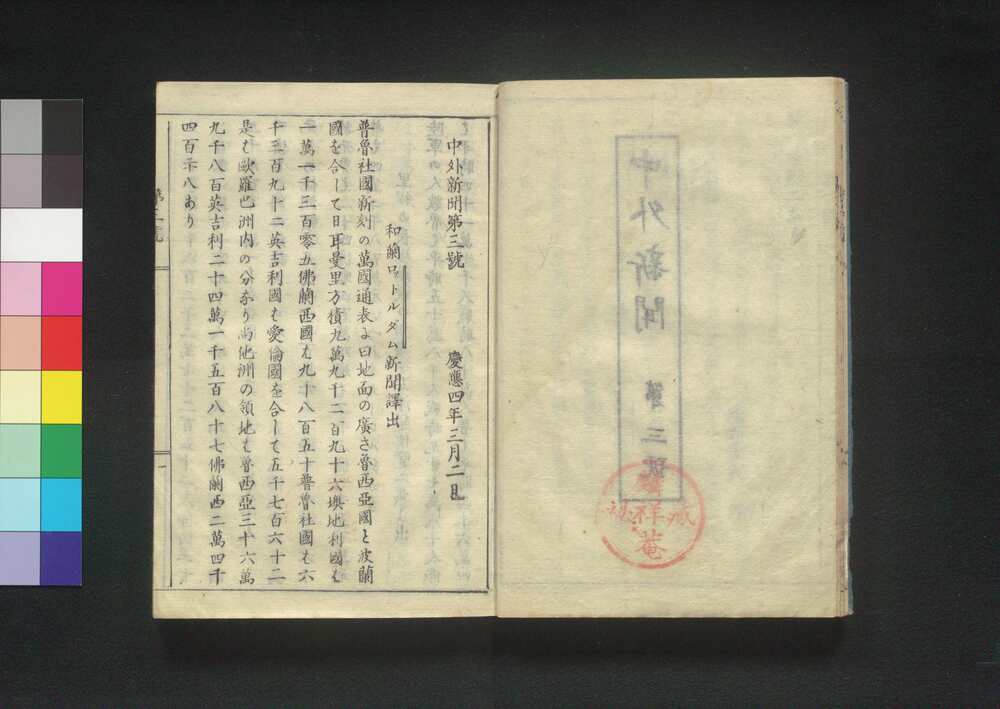 中外新聞
第三號
中外新聞第三號　慶應四年三月二日
和蘭ロットルダム新聞譯出
普魯社國新刻の萬國通表に曰地面の廣さ魯西亞國と波蘭
國を合して日耳曼里方積九萬九千二百九十六墺地利國は
一萬一千三百零五佛蘭西國は九千八百五十普魯社國は六
千三百九十二英吉利國は愛倫國を合して五千七百六十二
是は歐羅巴洲内の分なり尚他洲の領地は魯西亞三十六萬
九千八百英吉利二十四萬一千五百八十七佛蘭西二萬四千
四百零八あり
第三號
一